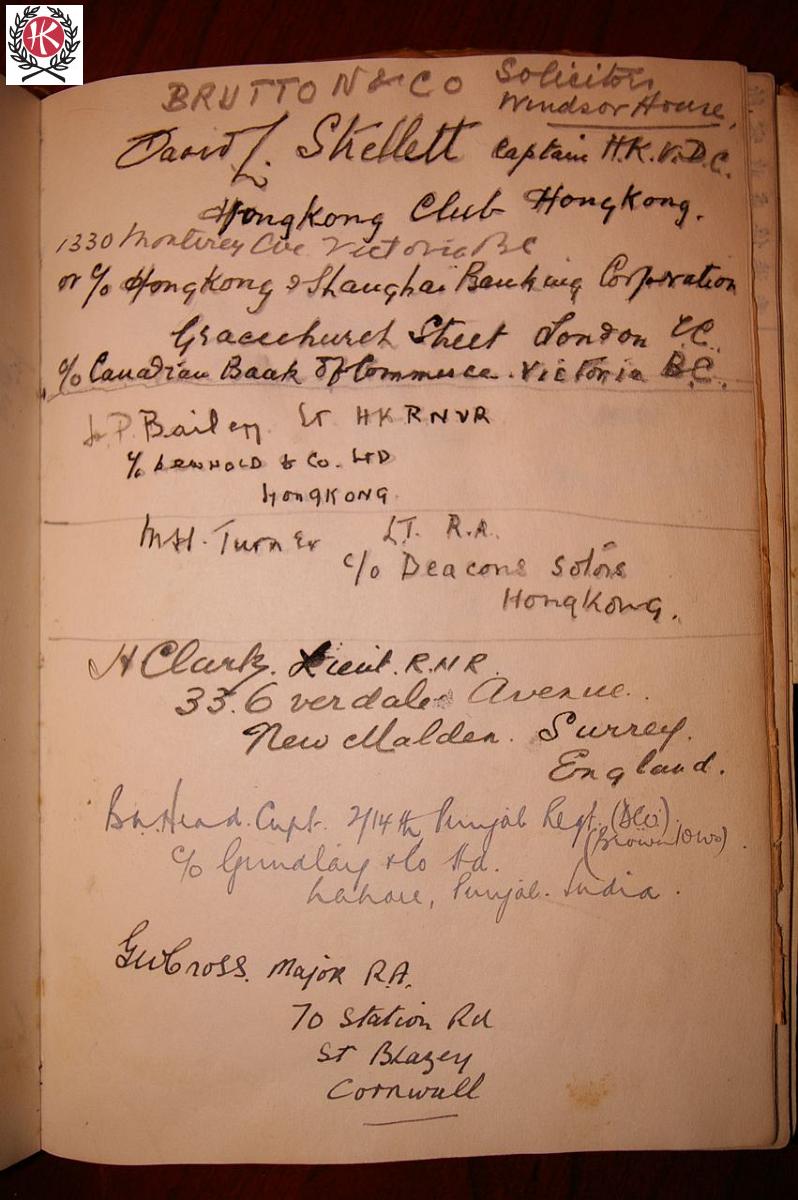 HK
BRUTTON & CO Solicitors
Windsor House,
David L. Skellett Captain H.K.V.D.C.
Hongkong Club Hongkong.
1330 Monterey Ave Victoria BC
or c/o Hongkong & Shanghai Banking Corporation
Gracechurch Street London E.C.
c/o Canadian Bank Of Commerce. Victoria B.C.
P. Bailey Lt HKRNVR
c/o & Co. LTD
HongKONG.
M.H. Turner LT. R.A.
c/o Deacons Solrs
HongKong.
H Clark. Lieut. R.N.R.
33. Everdale Avenue.
New Malden. Surrey.
England.
Head. Capt. 2/14th Punjab Regt.
c/o Grindlay & Co Ltd.
Lahore, Punjab. India.
GW Cross. Major R.A.
70 Station Rd
St Blazey
Cornwall